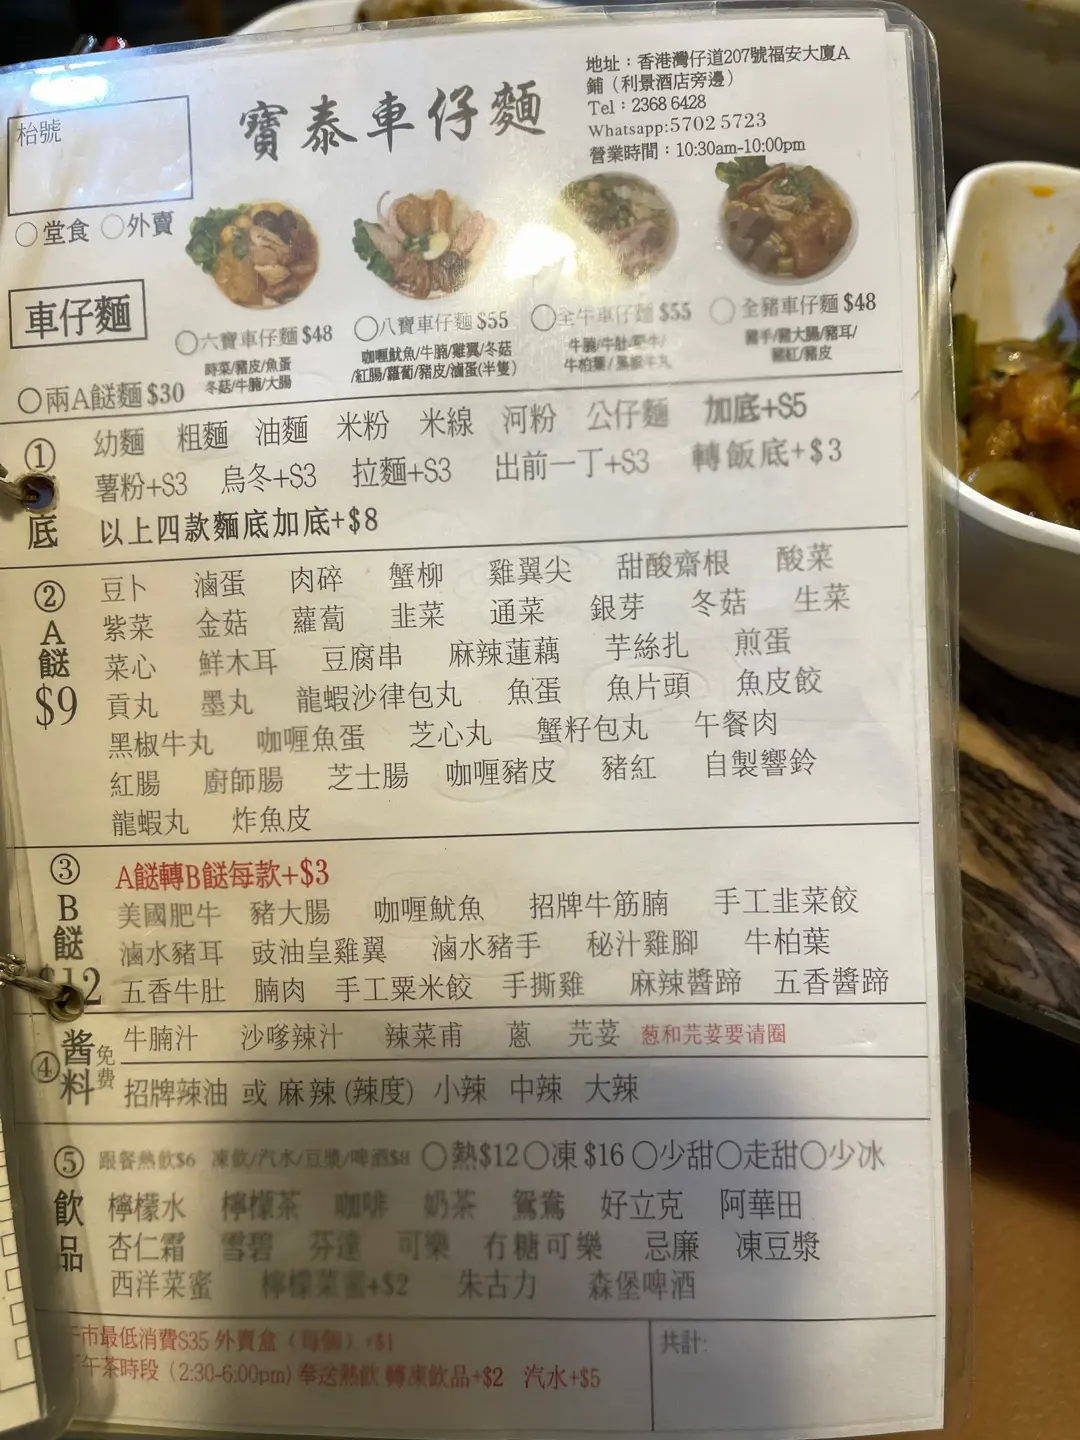 枱號
寶泰車仔麵
地址：香港灣仔道207號福安大廈A
鋪（利景酒店旁邊）
Tel：2368 6428
Whatsapp:5702 5723
營業時間：10:30am-10:00pm
○堂食 ○外賣
車仔麵
○六寶車仔麵 $48
時菜/豬皮/魚蛋
冬菇/牛腩/大腸
○八寶車仔麵 $55
咖喱魷魚/牛腩/雞翼/冬菇
/紅腸/蘿蔔/豬皮/滷蛋(半隻)
○全牛車仔麵 $55
牛腩/牛肚/肥牛/
牛柏葉/黑椒牛丸
○全豬車仔麵 $48
豬手/豬大腸/豬耳/
豬紅/豬皮
○兩A餸麵 $30
①底
幼麵 粗麵 油麵 米粉 米線 河粉 公仔麵 加底+$5
薯粉+$3 烏冬+$3 拉麵+$3 出前一丁+$3 轉飯底+$3
以上四款麵底加底+$8
②A餸$9
豆卜 滷蛋 肉碎 蟹柳 雞翼尖 甜酸齋根 酸菜
紫菜 金菇 蘿蔔 韭菜 通菜 銀芽 冬菇 生菜
菜心 鮮木耳 豆腐串 麻辣蓮藕 芋絲扎 煎蛋
貢丸 墨丸 龍蝦沙律包丸 魚蛋 魚片頭 魚皮餃
黑椒牛丸 咖喱魚蛋 芝心丸 蟹籽包丸 午餐肉
紅腸 廚師腸 芝士腸 咖喱豬皮 豬紅 自製響鈴
龍蝦丸 炸魚皮
③B餸$12
A餸轉B餸每款+$3
美國肥牛 豬大腸 咖喱魷魚 招牌牛筋腩 手工韭菜餃
滷水豬耳 豉油皇雞翼 滷水豬手 秘汁雞腳 牛柏葉
五香牛肚 腩肉 手工粟米餃 手撕雞 麻辣醬蹄 五香醬蹄
④酱料 免費
牛腩汁 沙嗲辣汁 辣菜甫 蔥 芫荽 葱和芫荽要请圈
招牌辣油 或 麻辣 (辣度) 小辣 中辣 大辣
⑤飲品
跟餐熱飲$6 凍飲/汽水/豆漿/啤酒$8 ○熱$12○凍 $16 ○少甜○走甜○少冰
檸檬水 檸檬茶 咖啡 奶茶 鴛鴦 好立克 阿華田
杏仁霜 雪碧 芬達 可樂 冇糖可樂 忌廉 凍豆漿
西洋菜蜜 檸檬菜蜜+$2 朱古力 森堡啤酒
午市最低消費$35 外賣盒（每個）+$1
下午茶時段（2:30-6:00pm) 奉送熱飲 轉凍飲品+$2 汽水+$5
共計: